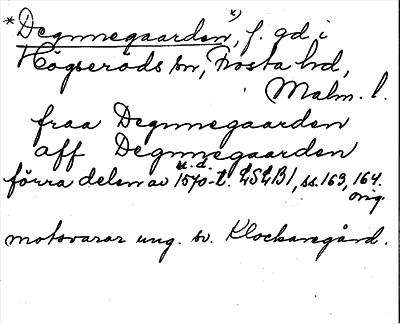 *Degnnegaarden *), f. gd i
Högseröds sn, Frosta hd,
i Malm. l.
fraa Degnnegaarden
aff Degnnegaarden
u. d.
förra delen av 1570-t. LSLB1, ss. 163, 164.
orig.
motsvarar ung. sv. Klockaregård.